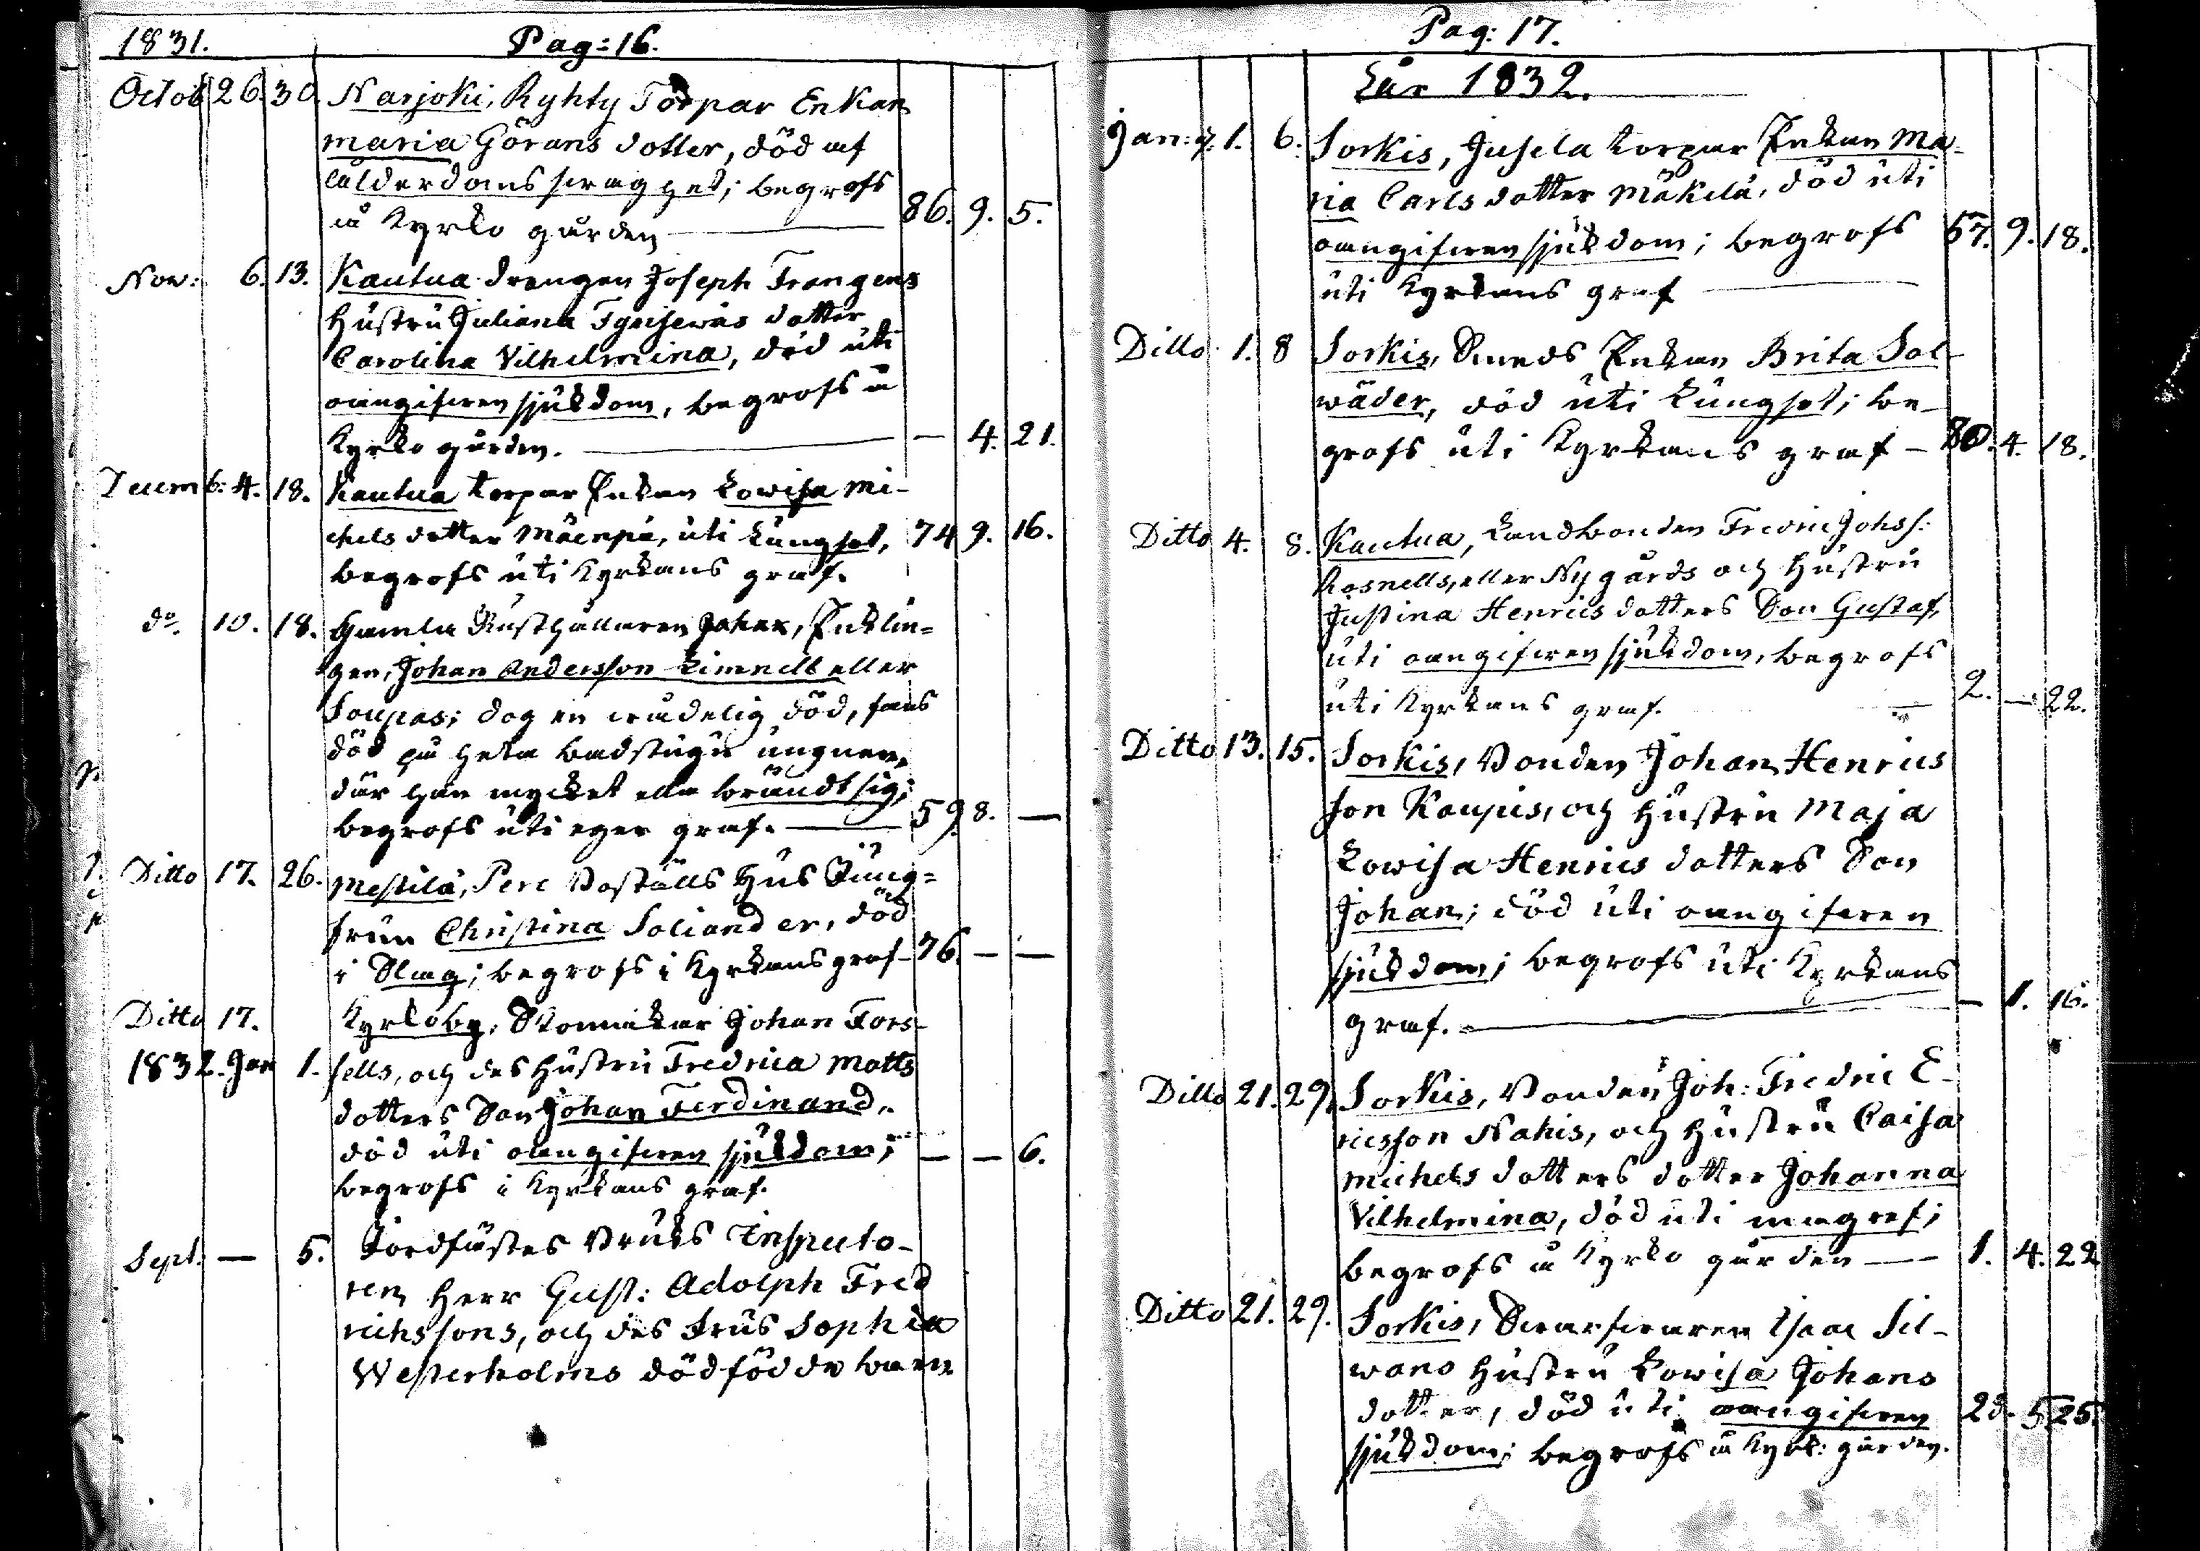 1831. Pag: 16.
Octob 26. 30. Narjoki, Ryhty Torpar Enkan
Maria Görans dotter, död af
ålderdoms svaghet; begrofs
å Kyrko gården 86. 9. 5.
Nov: 6. 13. Kautua drengen Joseph Frangens
Hustru Juliana Dotter
Carolina Vilhelmina, död uti
oangifven sjukdom, begrofs å
Kyrko gården. — 4. 21.
Decemb: 4. 18. Kautua torpar Enkan Lowisa Mi-
chels dotter Mäenpä, uti Lungsot, 74 9. 16.
begrofs uti Kyrkans graf.
do. 10. 18. Gamla Rusthållaren Johan, Enklin=
gen, Johan Andersson Limnell eller
Soupas; dog en wådelig död, fans
död på heta badstugu ungnen,
där han mycket illa brändt sig;
begrofs uti egen graf. 59. 8. —
Ditto 17. 26. Mestilä, Pere Boställs Hus Jung=
frun Christina Soliander, död
i Slag; begrofs i Kyrkans graf 76. — —
Ditto 17. Kyrkoby, Skomakar Johan Fors-
1832. Jan 1. sells, och des Hustru Fredrica Matts
dotters Son Johan Ferdinand,
död uti oangifven sjukdom; — — 6.
begrofs i Kyrkans graf.
Sept: — 5. Jordfästes Bruks Inspecto-
ren Herr Gust: Adolph Fred
richssons, och des Frus Sophia
Westerholms dödfödde barn
Pag: 17.
År 1832.
Jan: 1. 6. Sorkis, Jusela torpar Enkan Ma-
ria Carls dotter Mäkelä, död uti
oangifven sjukdom; begrofs 57. 9. 18.
uti Kyrkans graf
Ditto 1. 8 Sorkis, Smeds Enkan Brita Sal-
wäder, död uti Lungsot; be-
grofs uti Kyrkans graf — 80. 4. 18.
Ditto 4. 8. Kautua, Landbonden Fredric Johss:
Rosnells, eller Nygårds och Hustru
Justina Henrics dotters Son Gustaf,
uti oangifven sjukdom, begrofs
uti Kyrkans graf. 2. — 22.
Ditto 13. 15. Sorkis, Bonden Johan Henrics
son Kaupis, och Hustru Maja
Lowisa Henrics dotters Son
Johan; död uti oangifven
sjukdom; begrofs uti Kyrkans
graf. — 1. 16.
Ditto 21. 29. Sorkis, Bonden Joh: Fredric E-
ricsson Nahis, och Hustru Caisa
Michels dotters dotter Johanna
Vilhelmina, död uti magref;
begrofs å Kyrko gården 1. 4. 22
Ditto 21. 29. Sorkis, Swarfwaren Isaac Sil-
wano Hustru Lowisa Johans
dotter, död uti oangifven 28. 5 25.
sjukdom; begrofs å Kyrk: gården.